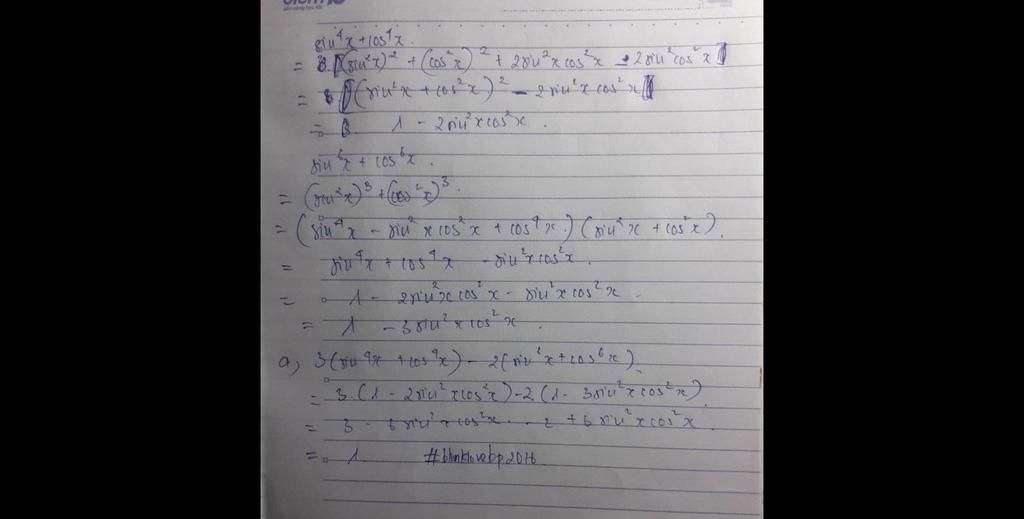 sin⁴x + cos⁴x.
= (sin²x)² + (cos²x)² + 2sin²x cos²x - 2sin²cos²x
= (sin²x + cos²x)² - 2sin²x cos²x
= 1 - 2sin²x cos²x.
sin⁶x + cos⁶x.
= (sin²x)³ + (cos²x)³.
= (sin⁴x - sin²x cos²x + cos⁴x.)(sin²x + cos²x).
= sin⁴x + cos⁴x - sin²x cos²x.
= 1 - 2sin²x cos²x - sin²x cos²x.
= 1 - 3sin²x cos²x.
a, 3(sin⁴x + cos⁴x) - 2(sin⁶x + cos⁶x).
= 3.(1 - 2sin²x cos²x) - 2(1 - 3sin²x cos²x).
= 3 - 6sin²x cos²x - 2 + 6sin²x cos²x.
= 1. #blinklovebp2016